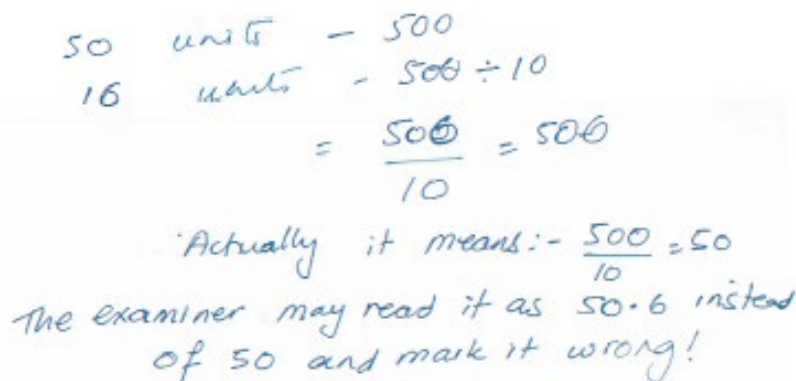 50 units - 500
16 units - 500 ÷ 10
= 506/10 = 506
Actually it means:- 500/10 = 50
The examiner may read it as 50.6 instead
of 50 and mark it wrong!